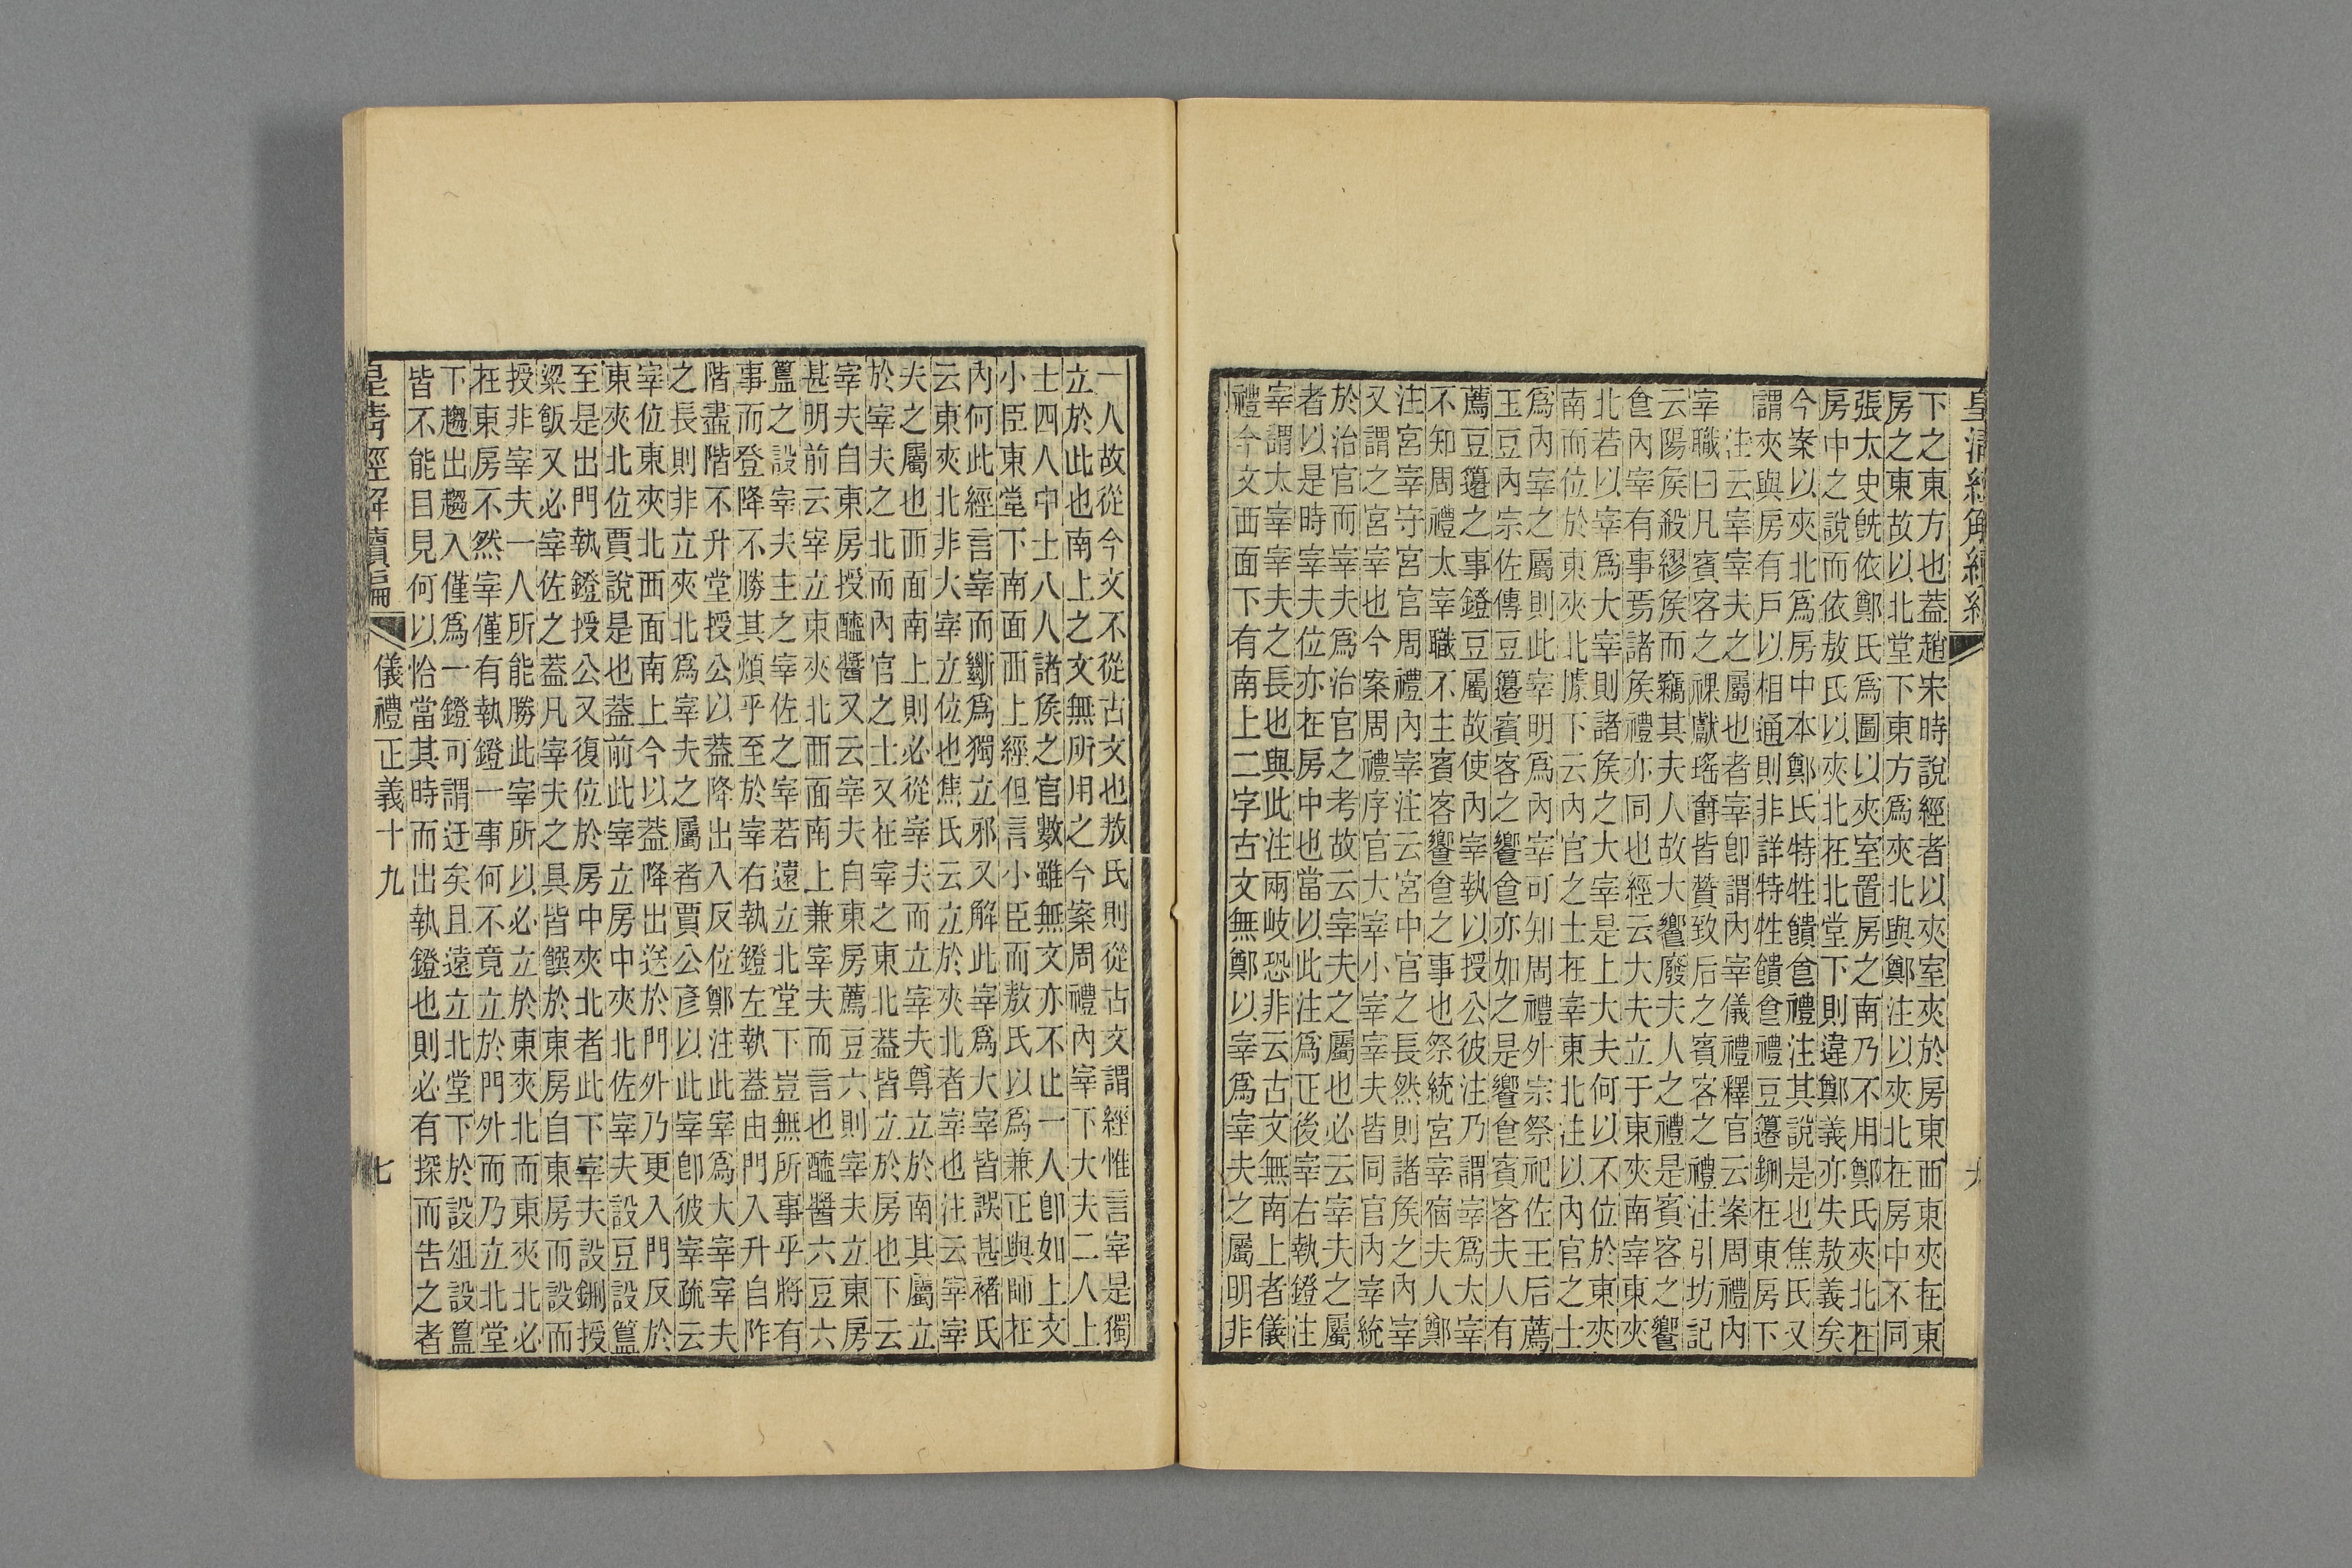 皇清經解續編
下之東方也葢趙宋時說經者以夾室夾於房東西東夾在東
房之東故以北堂下東方爲夾北與鄭注以夾北在房中不同
張太史旣依鄭氏爲圖以夾室置房之南乃不用鄭氏夾北在
房中之說而依敖氏以夾北在北堂下則違鄭義亦失敖義矣
今案以夾北爲房中本鄭氏特牲饋食禮注其說是也焦氏又
謂夾與房有戶以相通則非詳特牲饋食禮豆籩鉶在東房下
注云宰宰夫之屬也者宰卽謂內宰儀禮釋官云案周禮內
宰職曰凡賓客之祼獻瑤爵皆贊致后之賓客之禮注引坊記
云陽侯殺繆侯而竊其夫人故大饗廢夫人之禮是賓客之饗
食內宰有事焉諸侯禮亦同也經云大夫立于東夾南宰東夾
北若以宰爲大宰則諸侯之大宰是上大夫何以不位於東夾
南而位於東夾北據下云內官之士在宰東北注以內官之士
爲內宰之屬則此宰明爲內宰可知周禮外宗祭祀佐王后薦
玉豆內宗佐傳豆籩賓客之饗食亦如之是饗食賓客夫人有
薦豆籩之事鐙豆屬故使內宰執以授公彼注乃謂宰爲太宰
不知周禮太宰職不主賓客饗食之事也祭統宮宰宿夫人鄭
注宮宰守宮官周禮內宰注云宮中官之長然則諸侯之內宰
又謂之宮宰也今案周禮序官大宰小宰宰夫皆同官內宰統
於治官而宰夫爲治官之考故云宰夫之屬也必云宰夫之屬
者以是時宰夫位亦在房中也當以此注爲正後宰右執鐙注
宰謂太宰宰夫之長也與此注兩岐恐非云古文無南上者儀
禮今文西面下有南上二字古文無鄭以宰爲宰夫之屬明非
一人故從今文不從古文也敖氏則從古文謂經惟言宰是獨
立於此也南上之文無所用之今案周禮內宰下大夫二人上
士四人中士八人諸侯之官數雖無文亦不止一人卽如上文
小臣東堂下南面西上經但言小臣而敖氏以爲兼正與師在
內何此經言宰而斷爲獨立邪又解此宰爲大宰皆誤甚褚氏
云東夾北非大宰立位也焦氏云立於夾北者宰也注云宰宰
夫之屬也西面南上則必從宰夫而立宰夫尊立於南其屬立
於宰夫之北而內官之士又在宰之東北葢皆立於房也下云
宰夫自東房授醯醬又云宰夫自東房薦豆六則宰夫立東房
甚明前云宰立東夾北西面南上兼宰夫而言也醯醬六豆六
簋之設宰夫主之宰佐之宰若遠立北堂下豈無所事乎將有
事而登降不勝其煩乎至於宰右執鐙左執葢由門入升自阼
階盡階不升堂授公以葢降出入反位鄭注此宰爲大宰宰夫
之長則非立夾北爲宰夫之屬者賈公彥以此宰卽彼宰疏云
宰位東夾北西面南上今以葢降出送於門外乃更入門反於
東夾北位賈說是也葢前此宰立房中夾北佐宰夫設豆設簋
至是出門執鐙授公又復位於房中夾北者此下宰夫設鉶授
粱飯又必宰佐之葢凡宰夫之具皆饌於東房自東房而設而
授非宰夫一人所能勝此宰所以必立於東夾北而東夾北必
在東房不然宰僅有執鐙一事何不竟立於門外而乃立北堂
下趨出趨入僅爲一鐙可謂迂矣且遠立北堂下於設俎設簋
皆不能目見何以恰當其時而出執鐙也則必有探而告之者
皇清經解續編 儀禮正義十九 七